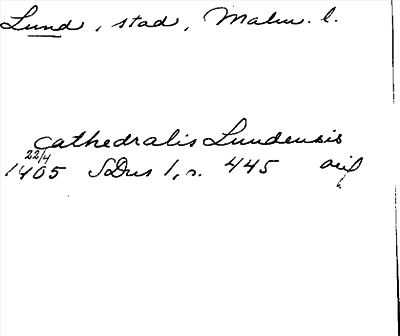 Lund, stad, Malm. l.
cathedralis Lundensis
22/4
1405 SDns 1, s. 445 avil